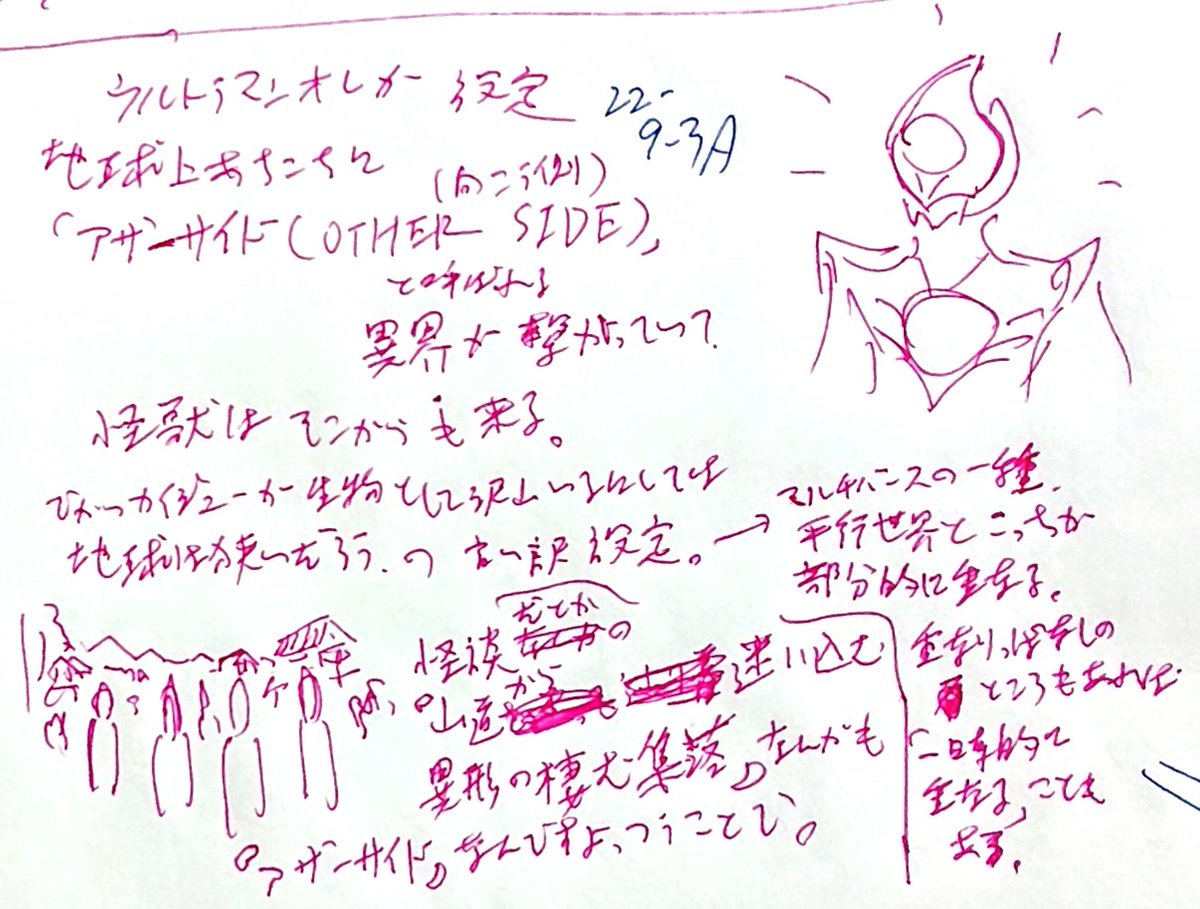 ウルトラマンオレガー 設定
22-9-3A
地球上あちこちに
(向こう側)
「アザーサイド(OTHER SIDE)」
と呼ばれる
異界が繋がっていて
怪獣はそこからも来る。
でかいカイジューが生物として沢山いるにしては
地球は狭いだろう、の 言い訳設定。→
マルチバースの一種、
平行世界とこっちが
部分的に重なる。
重なりっぱなしの
ところもあれば
「一時的に
重なる」ことも
ある。
怪談だとかの
『山道から迷い込む
異形の棲む集落』なんかも
『アザーサイド』なんですよ、つうことで。